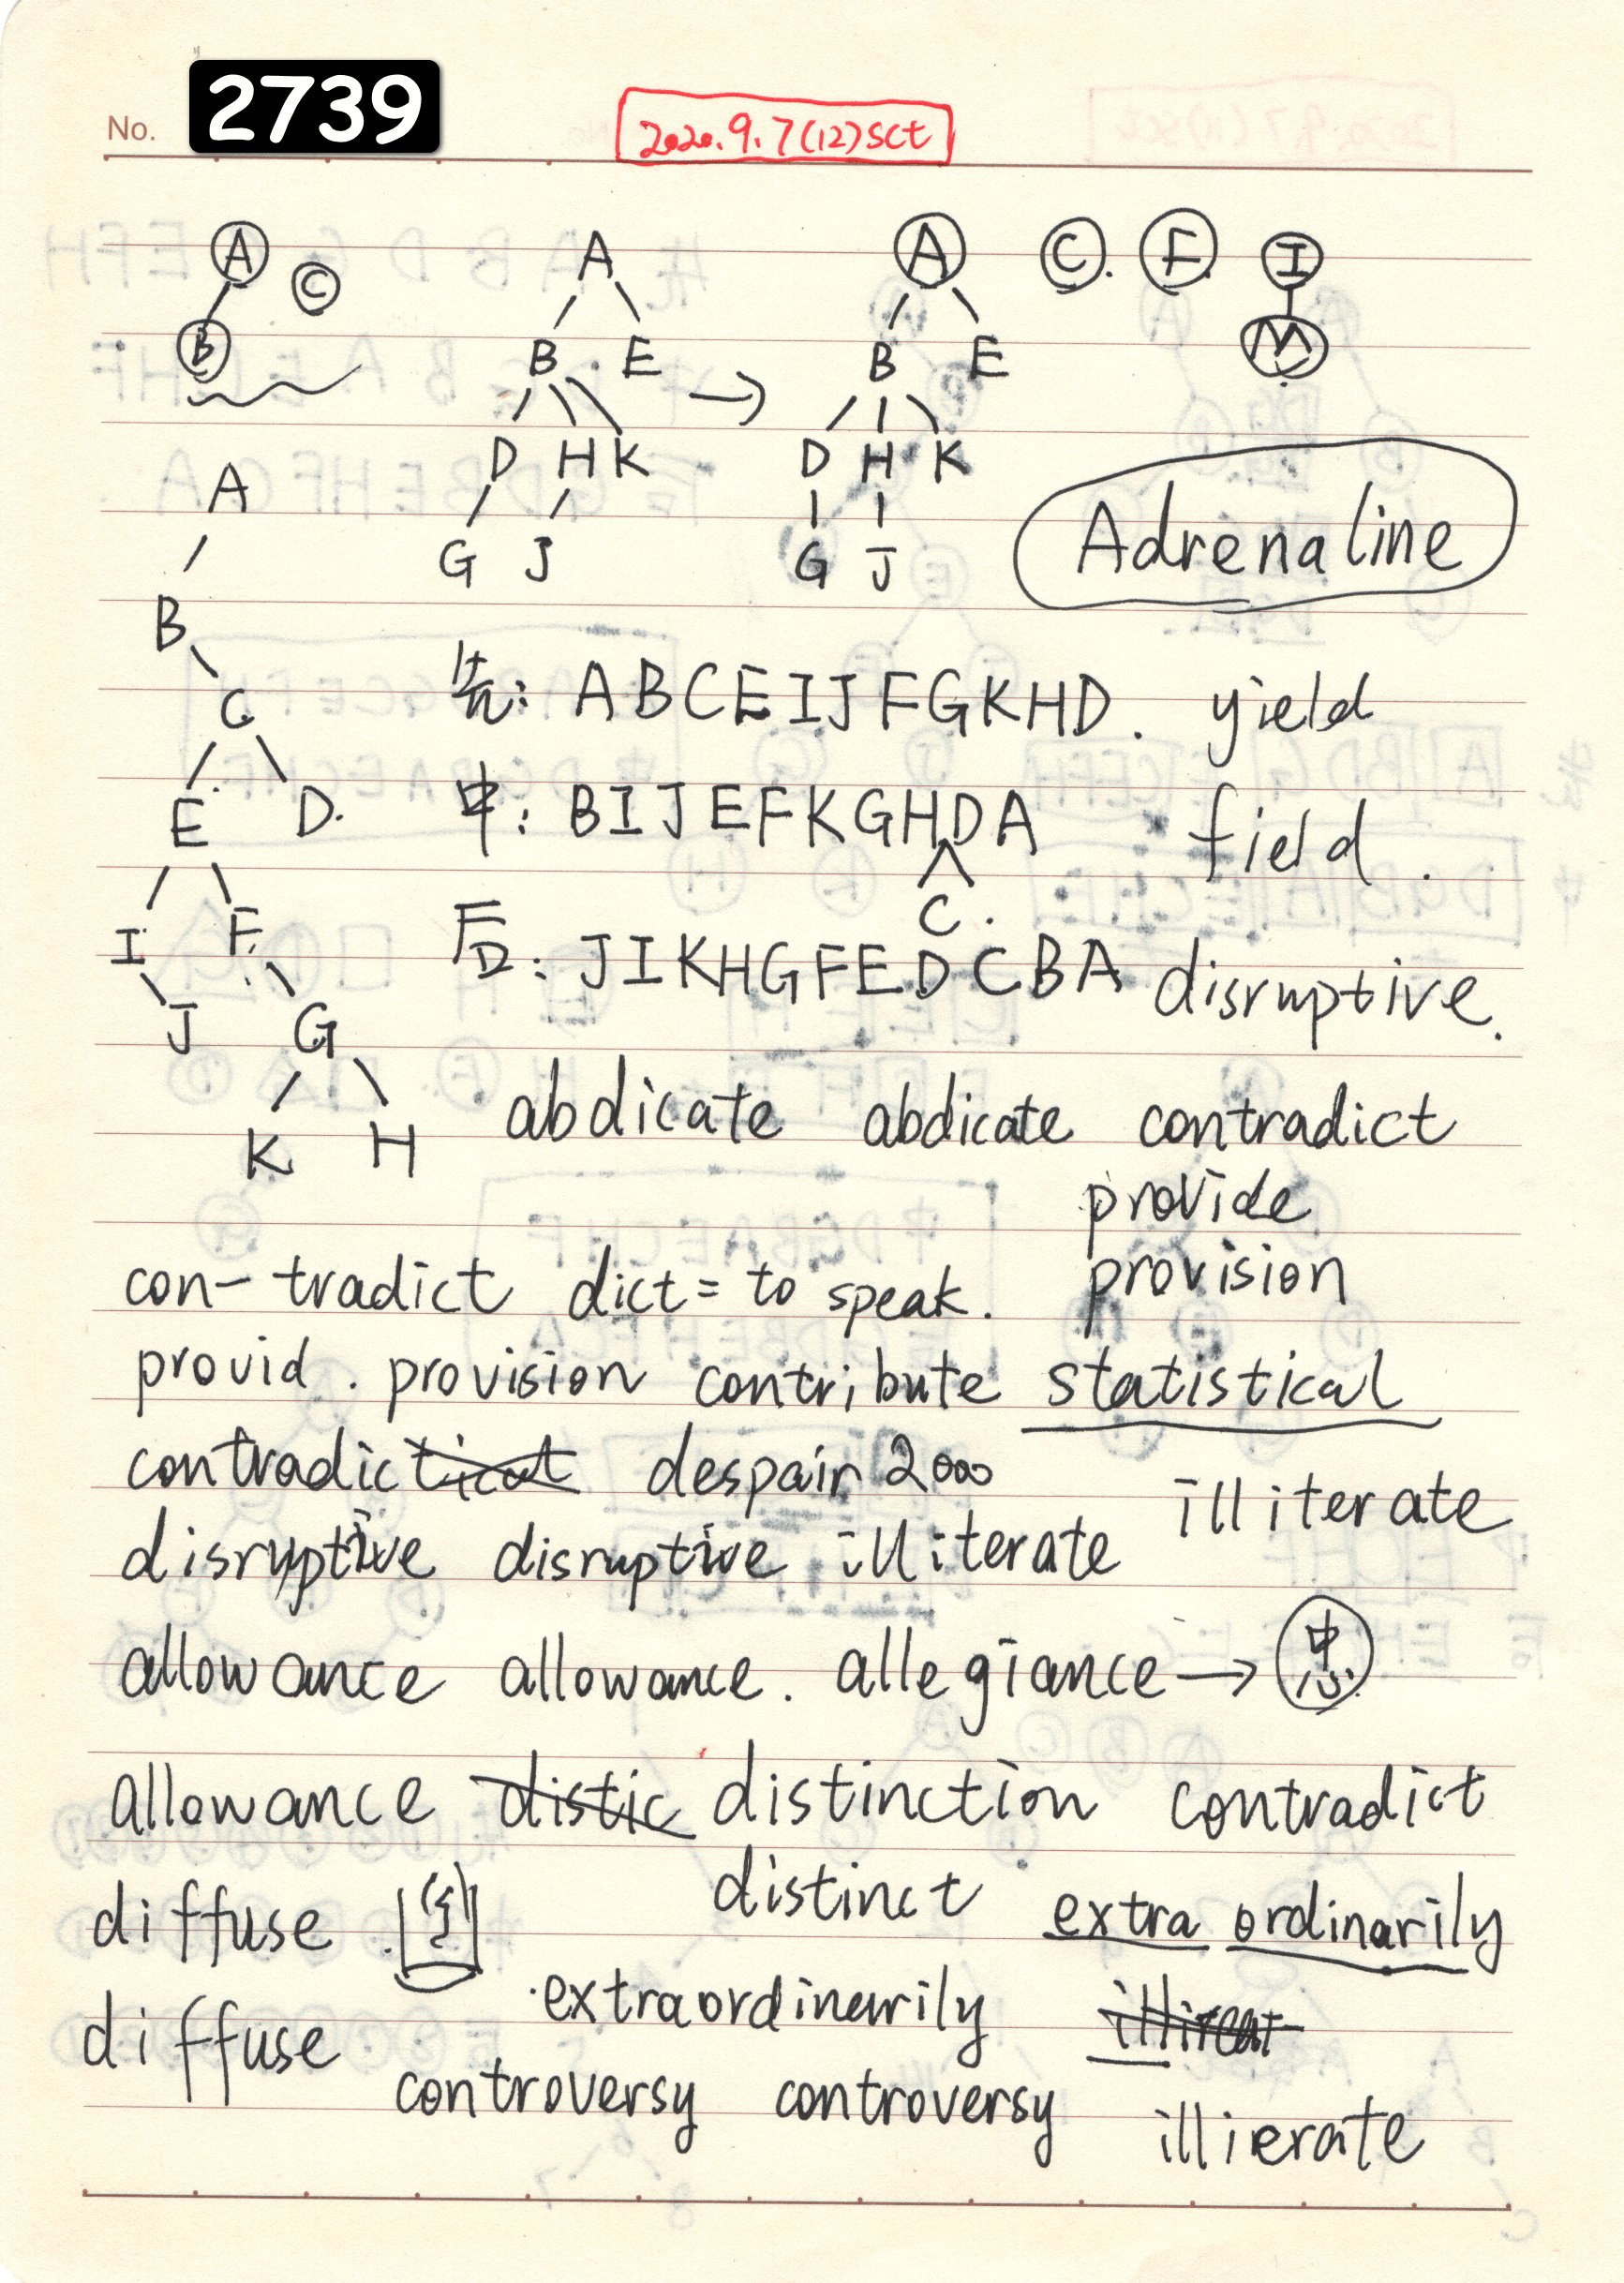 No. 2739
2020.9.7(12)sct
A C A A C. F. I
B B E B E M
D H K D H K
A G J G J Adrenaline
B
C 先: ABCEIJFGKHD. yield
E D. 中: BIJEFKGHDA field.
C.
I F. 后: JIKHGFEDCBA disruptive.
J G
K H abdicate abdicate contradict
provide
con- tradict dict = to speak. provision
provid. provision contribute statistical
contradicticat despair 2000 illiterate
disruptive disruptive illiterate
allowance allowance. allegiance → 忠
allowance distic distinction contradict
diffuse distinct extra ordinarily
diffuse extraordinarily
controversy controversy illierate